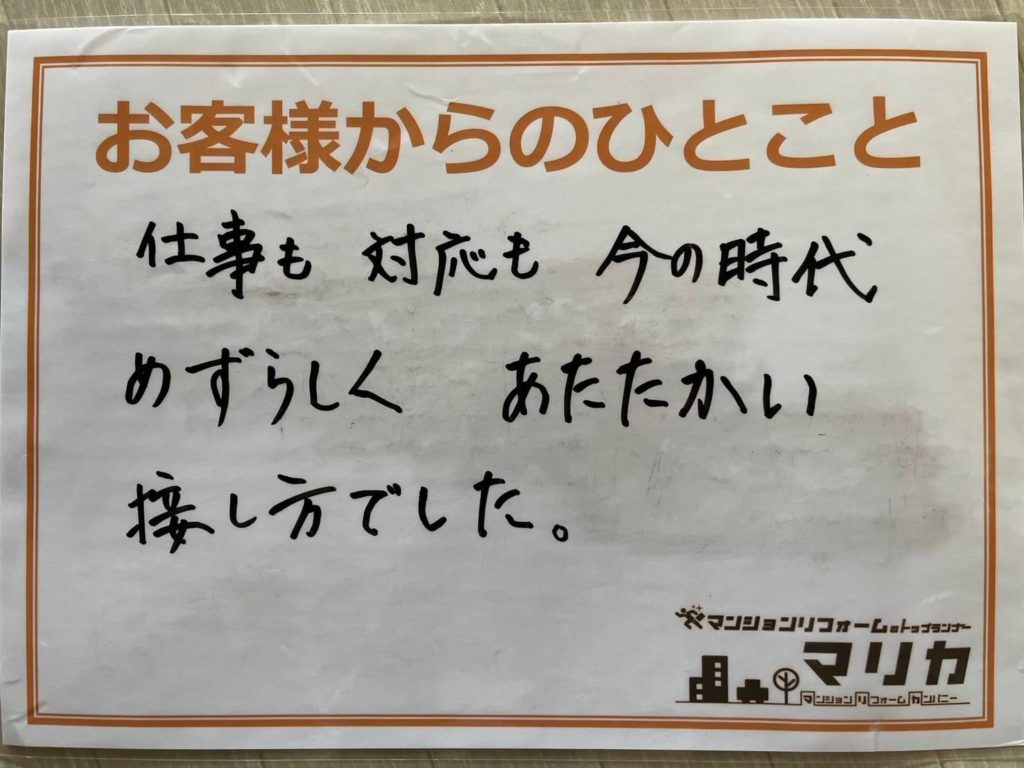 お客様からのひとこと
仕事も 対応も 今の時代
めずらしく あたたかい
接し方でした。
マンションリフォームのトップランナー
マリカ
マンションリフォームカンパニー